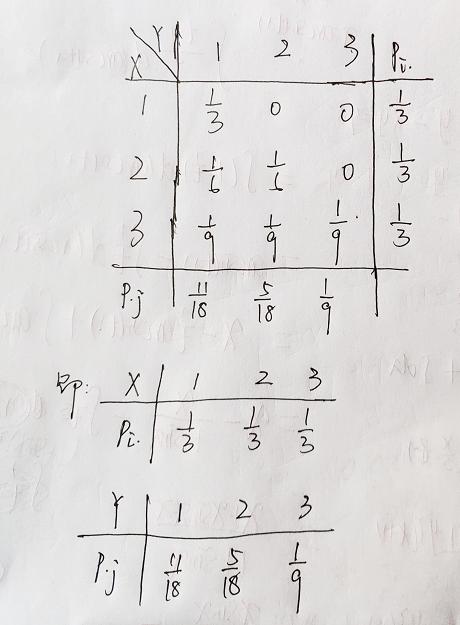 X Y 1 2 3 Pi.
1 1/3 0 0 1/3
2 1/6 1/6 0 1/3
3 1/9 1/9 1/9 1/3
P.j 11/18 5/18 1/9
即: X 1 2 3
Pi. 1/3 1/3 1/3
Y 1 2 3
P.j 11/18 5/18 1/9